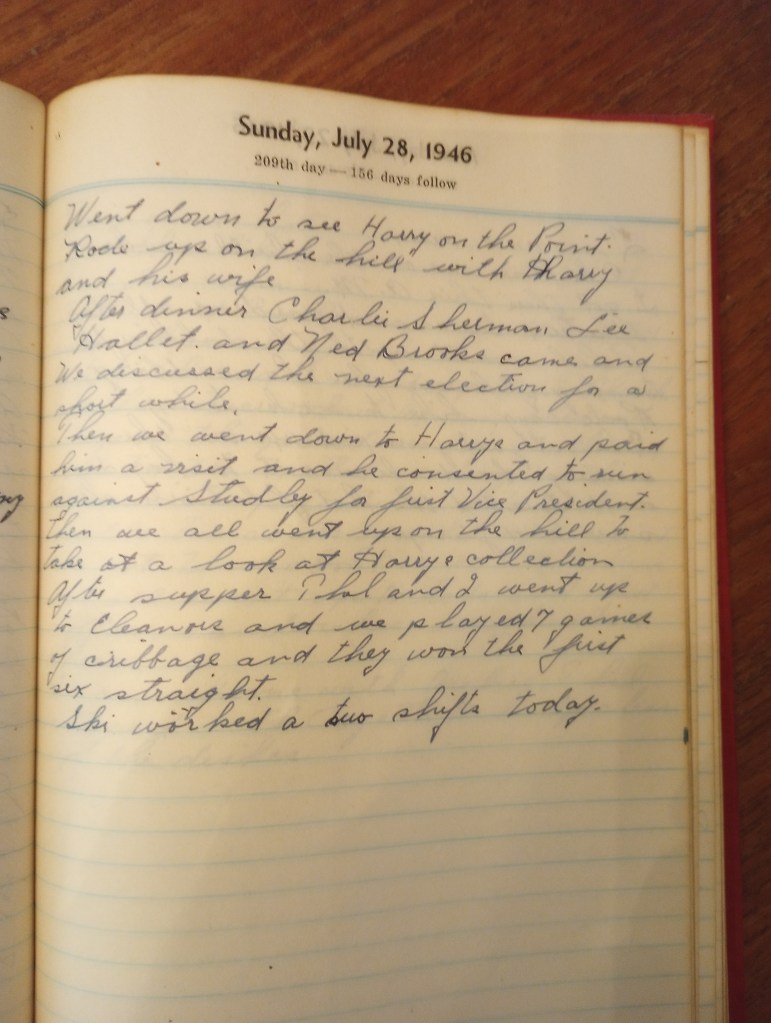 Sunday, July 28, 1946
209th day — 156 days follow
Went down to see Harry on the Point.
Rode up on the hill with Harry
and his wife
After dinner Charlie Sherman Lee
Hallet. and Ned Brooks came and
We discussed the next election for a
short while.
Then we went down to Harrys and paid
him a visit and he consented to run
against Studley for first Vice President.
Then we all went up on the hill to
take at a look at Harrys collection
After supper and I went up
to Eleanors and we played 7 games
of cribbage and they won the first
six straight.
Ski worked a two shifts today.